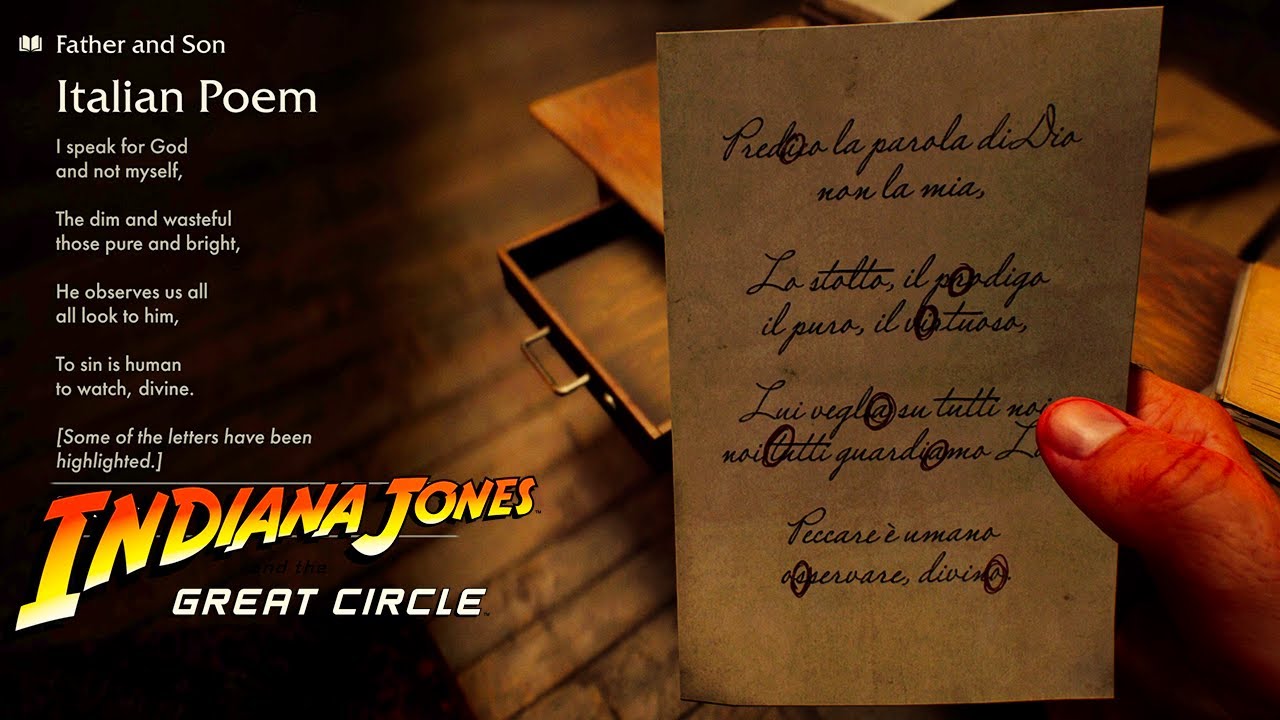 Father and Son
Italian Poem
I speak for God
and not myself,
The dim and wasteful
those pure and bright,
He observes us all
all look to him,
To sin is human
to watch, divine.
[Some of the letters have been
highlighted.]
INDIANA JONES™
and the
GREAT CIRCLE™
Predico la parola di Dio
non la mia,
Lo stolto, il prodigo
il puro, il virtuoso,
Lui veglia su tutti noi
noi tutti guardiamo
Peccare è umano
osservare, divino.